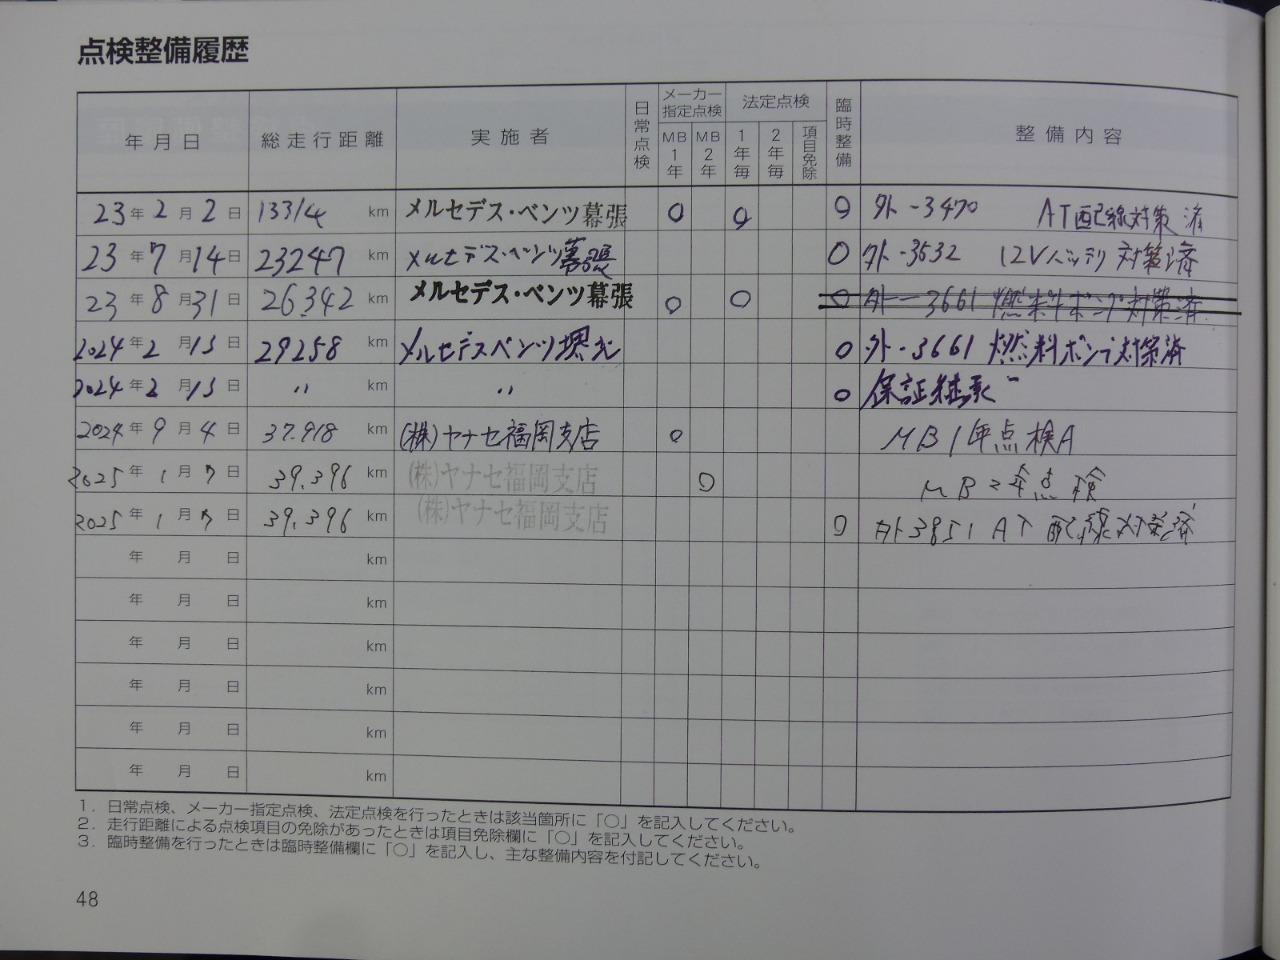 点検整備履歴
年月日 総走行距離 実施者 日常点検 メーカー指定点検 MB1年 MB2年 法定点検 1年毎 2年毎 項目免除 臨時整備 整備内容
23年2月2日 13314 km メルセデス・ベンツ幕張 ○ ○ ○ 外-3470 AT配線対策済
23年7月14日 23247 km メルセデス・ベンツ幕張 ○ 外-3532 12Vバッテリ対策済
23年8月31日 26342 km メルセデス・ベンツ幕張 ○ ○ ○ 外-3661 燃料ポンプ対策済
2024年2月13日 29258 km メルセデスベンツ堺北 ○ 外-3661 燃料ポンプ対策済
2024年2月13日 〃 km 〃 ○ 保証継承
2024年9月4日 37.918 km (株)ヤナセ福岡支店 ○ MB1年点検A
2025年1月7日 39.396 km (株)ヤナセ福岡支店 ○ MB2年点検
2025年1月7日 39.396 km (株)ヤナセ福岡支店 ○ 外3851 AT配線対策済
年 月 日 km
年 月 日 km
年 月 日 km
年 月 日 km
年 月 日 km
年 月 日 km
1. 日常点検、メーカー指定点検、法定点検を行ったときは該当箇所に「○」を記入してください。
2. 走行距離による点検項目の免除があったときは項目免除欄に「○」を記入してください。
3. 臨時整備を行ったときは臨時整備欄に「○」を記入し、主な整備内容を付記してください。
48